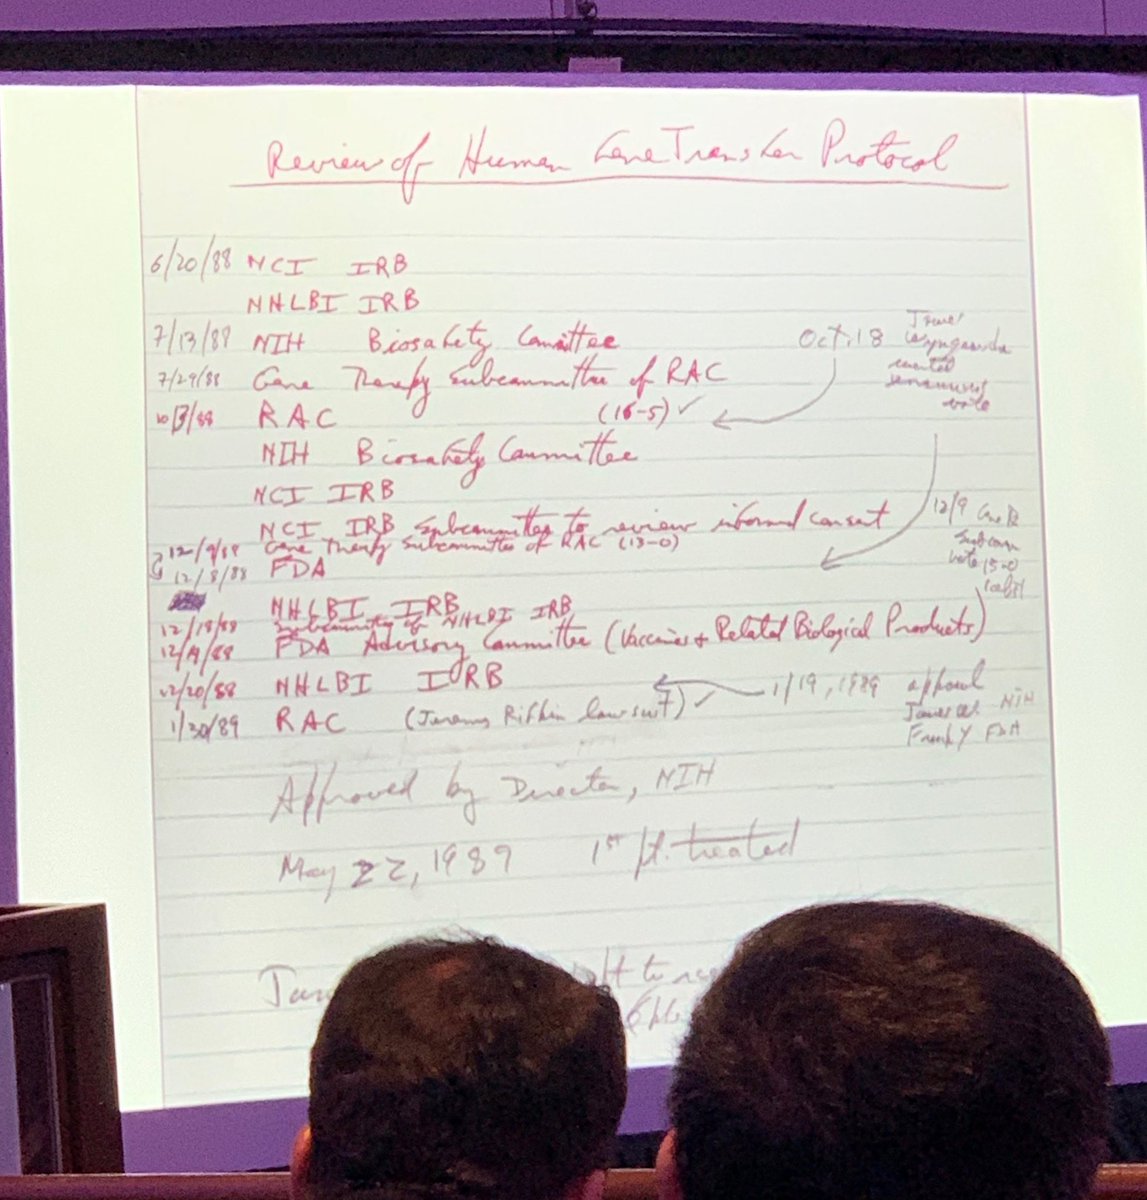 Review of Human Gene Transfer Protocol
6/20/88 NCI IRB
NHLBI IRB
7/13/88 NIH Biosafety Committee
7/29/88 Gene Therapy Subcommittee of RAC
10/3/88 RAC (16-5) ✓
NIH Biosafety Committee
NCI IRB
NCI IRB Subcommittee to review informed consent
12/9/88 Gene Therapy Subcommittee of RAC (13-0)
12/8/88 FDA
NHLBI IRB
12/18/88 Subcommittee of NHLBI IRB
12/19/88 FDA Advisory Committee (Vaccines + Related Biological Products)
12/20/88 NHLBI IRB
1/30/89 RAC (Jeremy Rifkin lawsuit) ✓
Approved by Director, NIH
May 22, 1989 1st pt. treated
Oct. 18
vote
12/9
vote
1/19, 1989 approval
NIH
Frank Y FDA
to